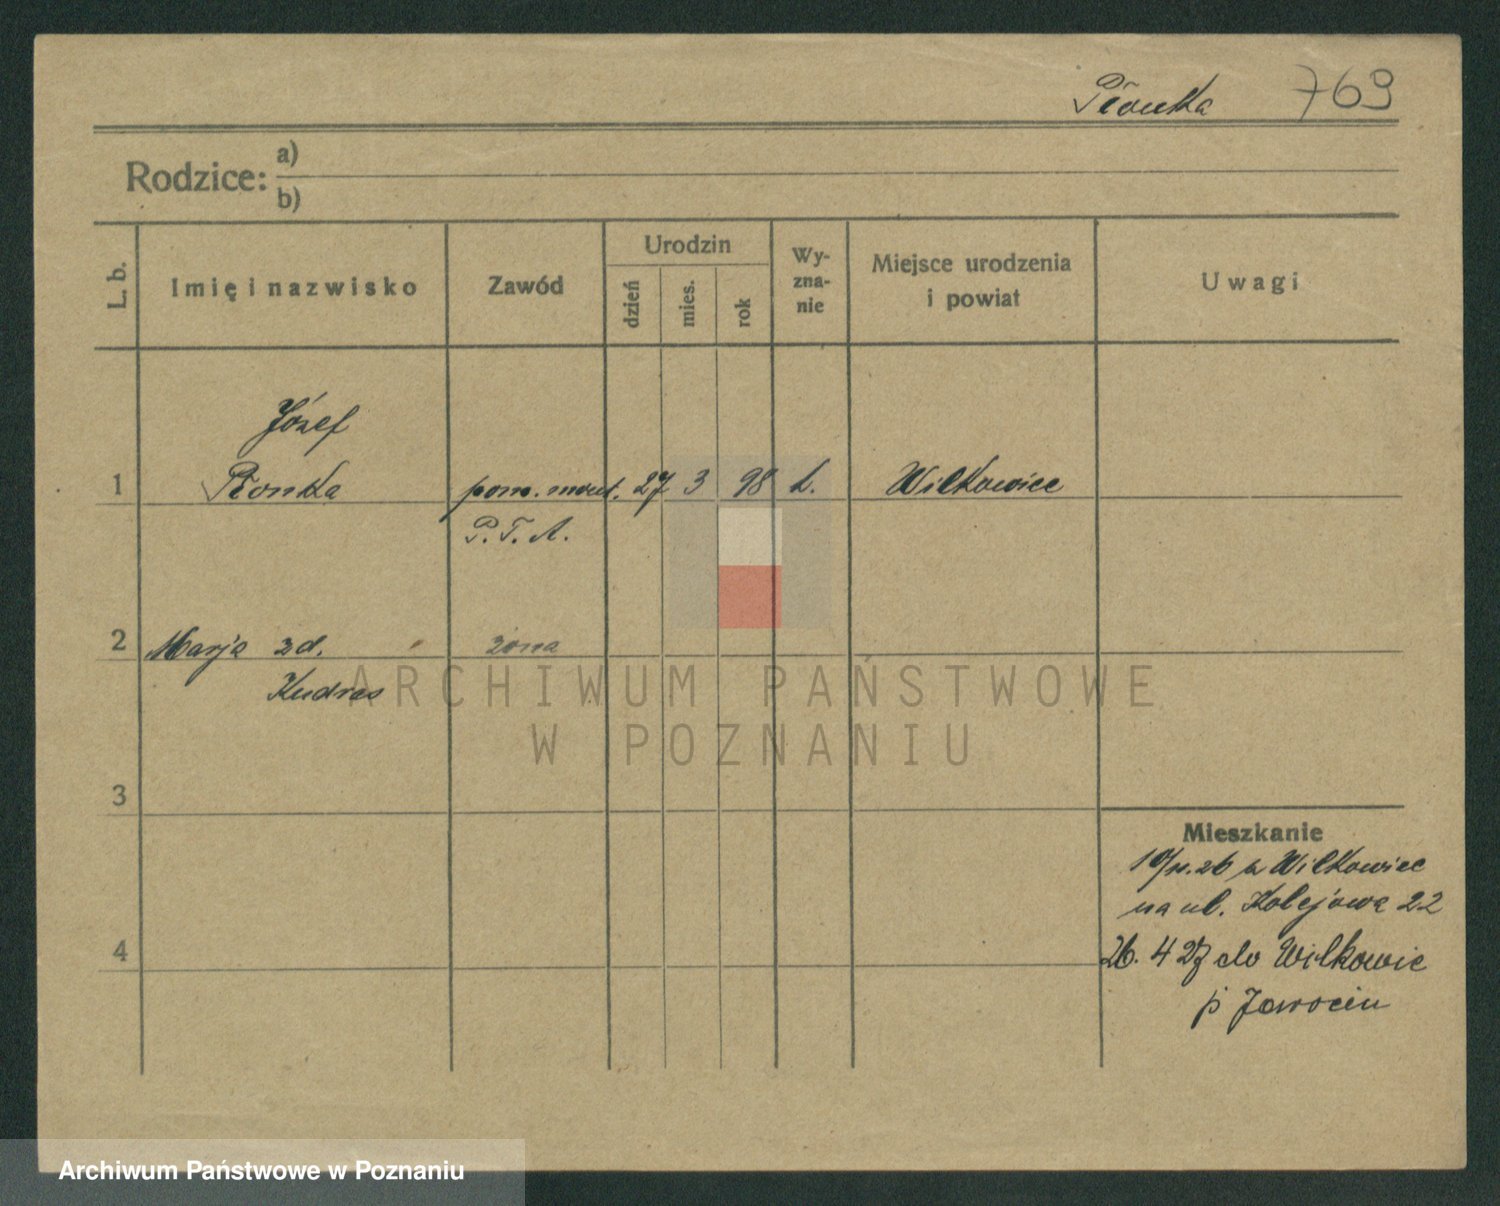 Płonka 769
Rodzice: a)
b)
L. b.
Imię i nazwisko
Zawód
Urodzin
dzień
mies.
rok
Wy-
zna-
nie
Miejsce urodzenia
i powiat
Uwagi
Józef
1 Płonka pom. mont. 27 3 98 k. Wilkowice
P. T. A.
2 Marja zd. żona
Kudras
ARCHIWUM PAŃSTWOWE
W POZNANIU
3
Mieszkanie
26 z Wilkowiec
na ul. Kolejową 22
4
26. 4 27 do Wilkowic
p Jarocin
Archiwum Państwowe w Poznaniu